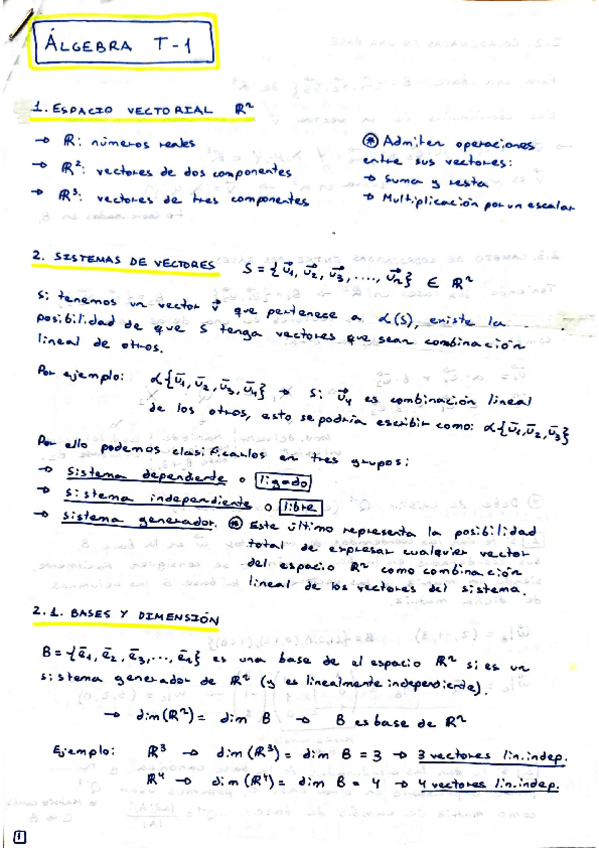 ÁLGEBRA T-1
1. ESPACIO VECTORIAL ℝⁿ
→ ℝ: números reales
→ ℝ²: vectores de dos componentes
→ ℝ³: vectores de tres componentes
⊛ Admiten operaciones
entre sus vectores:
→ Suma y resta
→ Multiplicación por un escalar
2. SISTEMAS DE VECTORES S = {u⃗₁, u⃗₂, u⃗₃, ...., u⃗ₙ} ∈ ℝⁿ
Si tenemos un vector v⃗ que pertenece a α(S), existe la
posibilidad de que S tenga vectores que sean combinación
lineal de otros.
Por ejemplo: α{ū₁, ū₂, ū₃, ū₄} → Si u⃗₄ es combinación lineal
de los otros, esto se podría escribir como: α{ū₁, ū₂, ū₃}
Por ello podemos clasificarlos en tres grupos:
→ Sistema dependiente o ligado
→ Sistema independiente o libre
→ Sistema generador. ⊛ Este último representa la posibilidad
total de expresar cualquier vector
del espacio ℝⁿ como combinación
lineal de los vectores del sistema.
2.1. BASES Y DIMENSIÓN
B = {ē₁, ē₂, ē₃, ..., ēₙ} es una base de el espacio ℝⁿ si es un
sistema generador de ℝⁿ (y es linealmente independiente).
→ dim(ℝⁿ) = dim B → B es base de ℝⁿ
Ejemplo: ℝ³ → dim(ℝ³) = dim B = 3 → 3 vectores lin. indep.
ℝ⁴ → dim(ℝ⁴) = dim B = 4 → 4 vectores lin. indep.
1